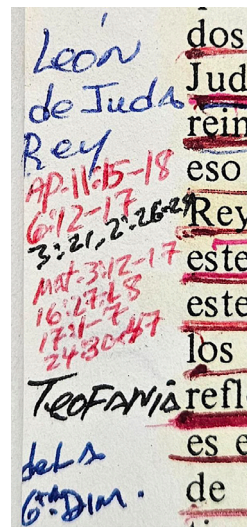 León
de Juda
Rey
AP. 11:15-18
6:12-17
3:21, 2:26-29
Mat. 3:12-17
16:27-28
17:1-7
24:30-47
TEOFANIA
de LA
6ta DIM.
dos
Jud
rein
eso
Rey
este
este
los
refl
es e
de